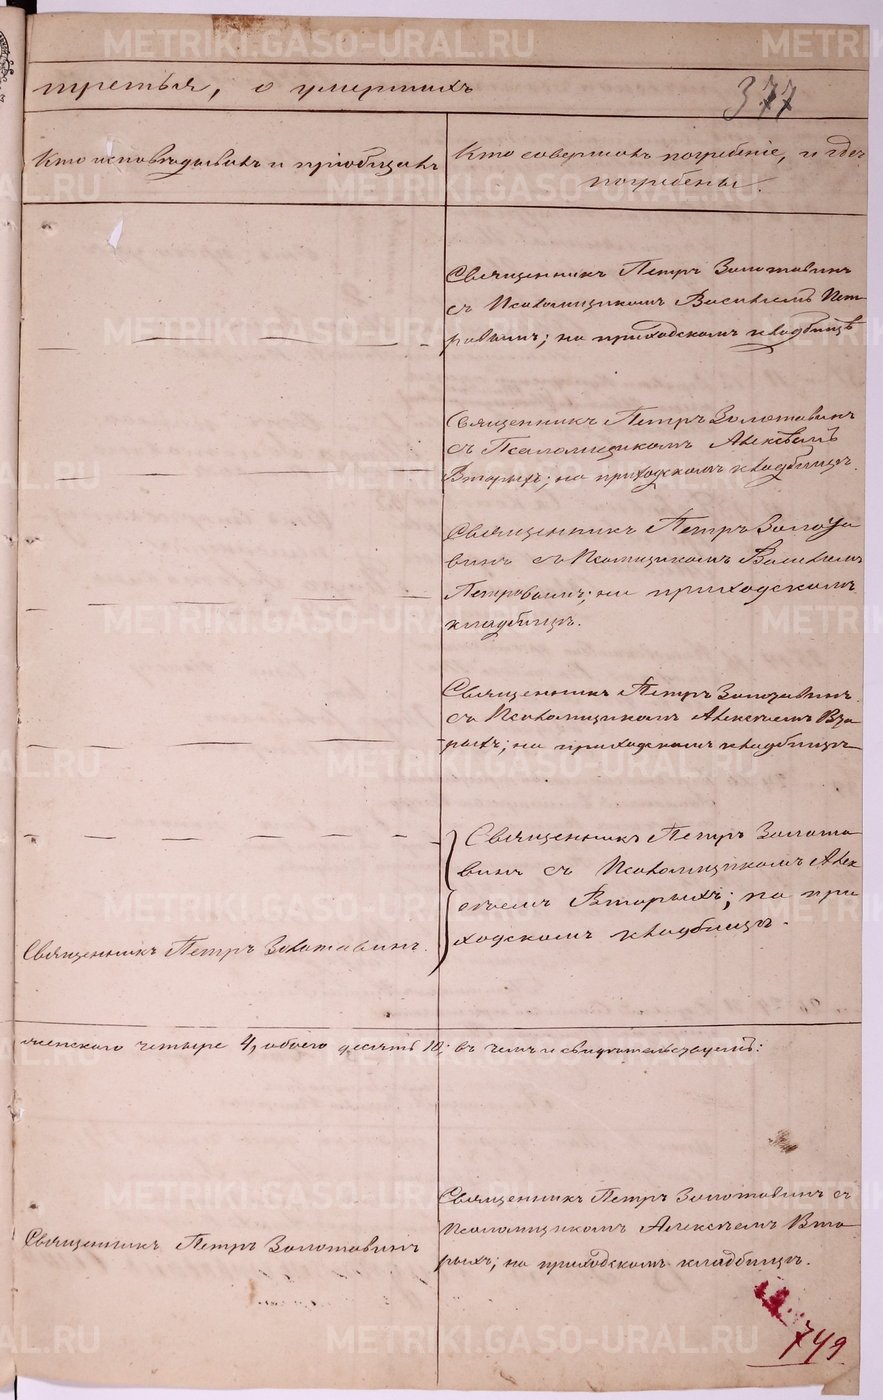 третья, о умершихъ
377
Кто исповѣдывалъ и пріобщалъ
Кто совершалъ погребеніе, и гдѣ
погребены.
Священникъ Петръ Золотавинъ
съ Псаломщикомъ Василіемъ Пет-
ровымъ; на приходскомъ кладбищѣ
Священникъ Петръ Золотавинъ
съ Псаломщикомъ Алексѣемъ
Вторыхъ; на приходскомъ кладбищѣ.
Священникъ Петръ Золота
винъ съ Псаломщикомъ Василіемъ
Петровымъ; на приходскомъ
кладбищѣ.
Священникъ Петръ Золотавинъ
съ Псаломщикомъ Алексѣемъ Вто
рыхъ; на приходскомъ кладбищѣ
Священникъ Петръ Золота
винъ съ Псаломщикомъ Алек
сѣемъ Вторыхъ; на при
ходскомъ кладбищѣ.
Священникъ Петръ Золотавинъ.
женского четыре 4, обоего десять 10; въ чемъ и свидѣтельствуемъ:
Священникъ Петръ Золотавинъ съ
Псаломщикомъ Алексѣемъ Вто
рыхъ; на приходскомъ кладбищѣ.
Священникъ Петръ Золотавинъ
749
METRIKI.GASO-URAL.RU